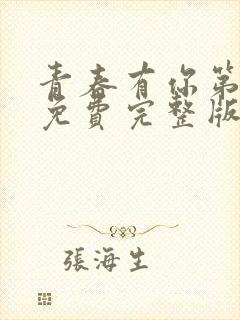 青春有你第
免費完整版
張海生